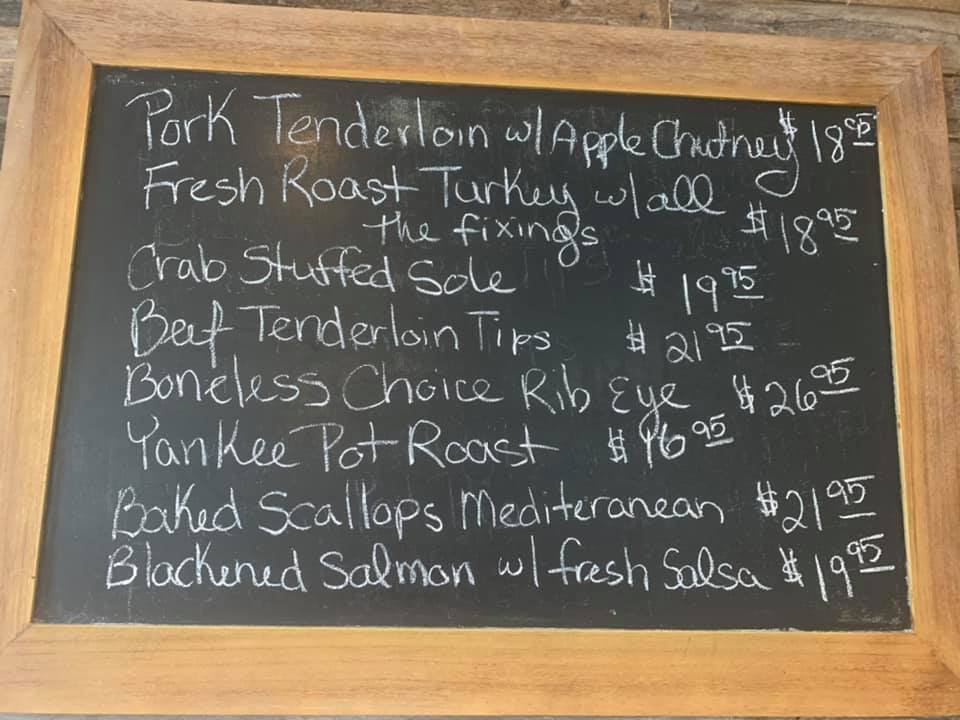 Pork Tenderloin w/ Apple Chutney $18 95
Fresh Roast Turkey w/ all
the fixings $18 95
Crab Stuffed Sole $19 95
Beef Tenderloin Tips $21 95
Boneless Choice Rib Eye $26 95
Yankee Pot Roast $16 95
Baked Scallops Mediteranean $21 95
Blackened Salmon w/ fresh Salsa $19 95